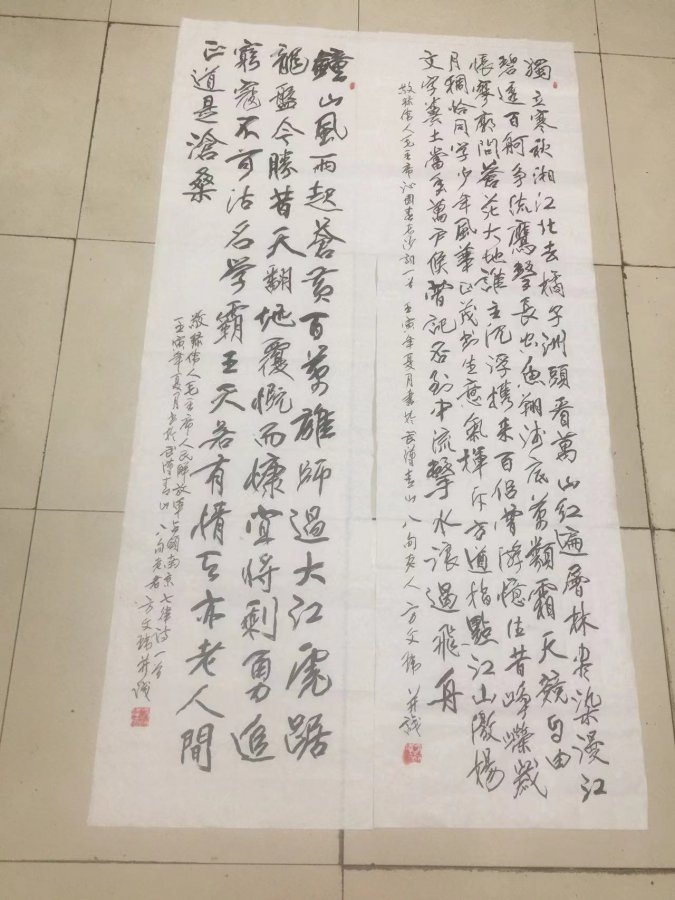 獨立寒秋湘江北去橘子洲頭看萬山紅遍層林尽染漫江
碧透百舸爭流鷹擊長空魚翔浅底萬類霜天競自由
悵寥廓問蒼茫大地誰主沉浮攜来百侶曾游憶往昔崢嶸歲
月稠恰同学少年風華正茂书生意氣揮斥方遒指點江山激揚
文字糞土當年萬户侯曾記否到中流擊水浪遏飛舟
敬録偉人毛主席沁園春長沙詞一首 壬寅年夏月書於武漢青山 八旬老人 方文 并識
鍾山風雨起蒼黄百萬雄師過大江虎踞
龍盤今勝昔天翻地覆慨而慷宜將剩勇追
窮寇不可沽名学霸王天若有情天亦老人間
正道是滄桑
敬録偉人毛主席人民解放軍占領南京七律詩一首
壬寅年夏月書於武漢青山 八旬老者 方文 并識